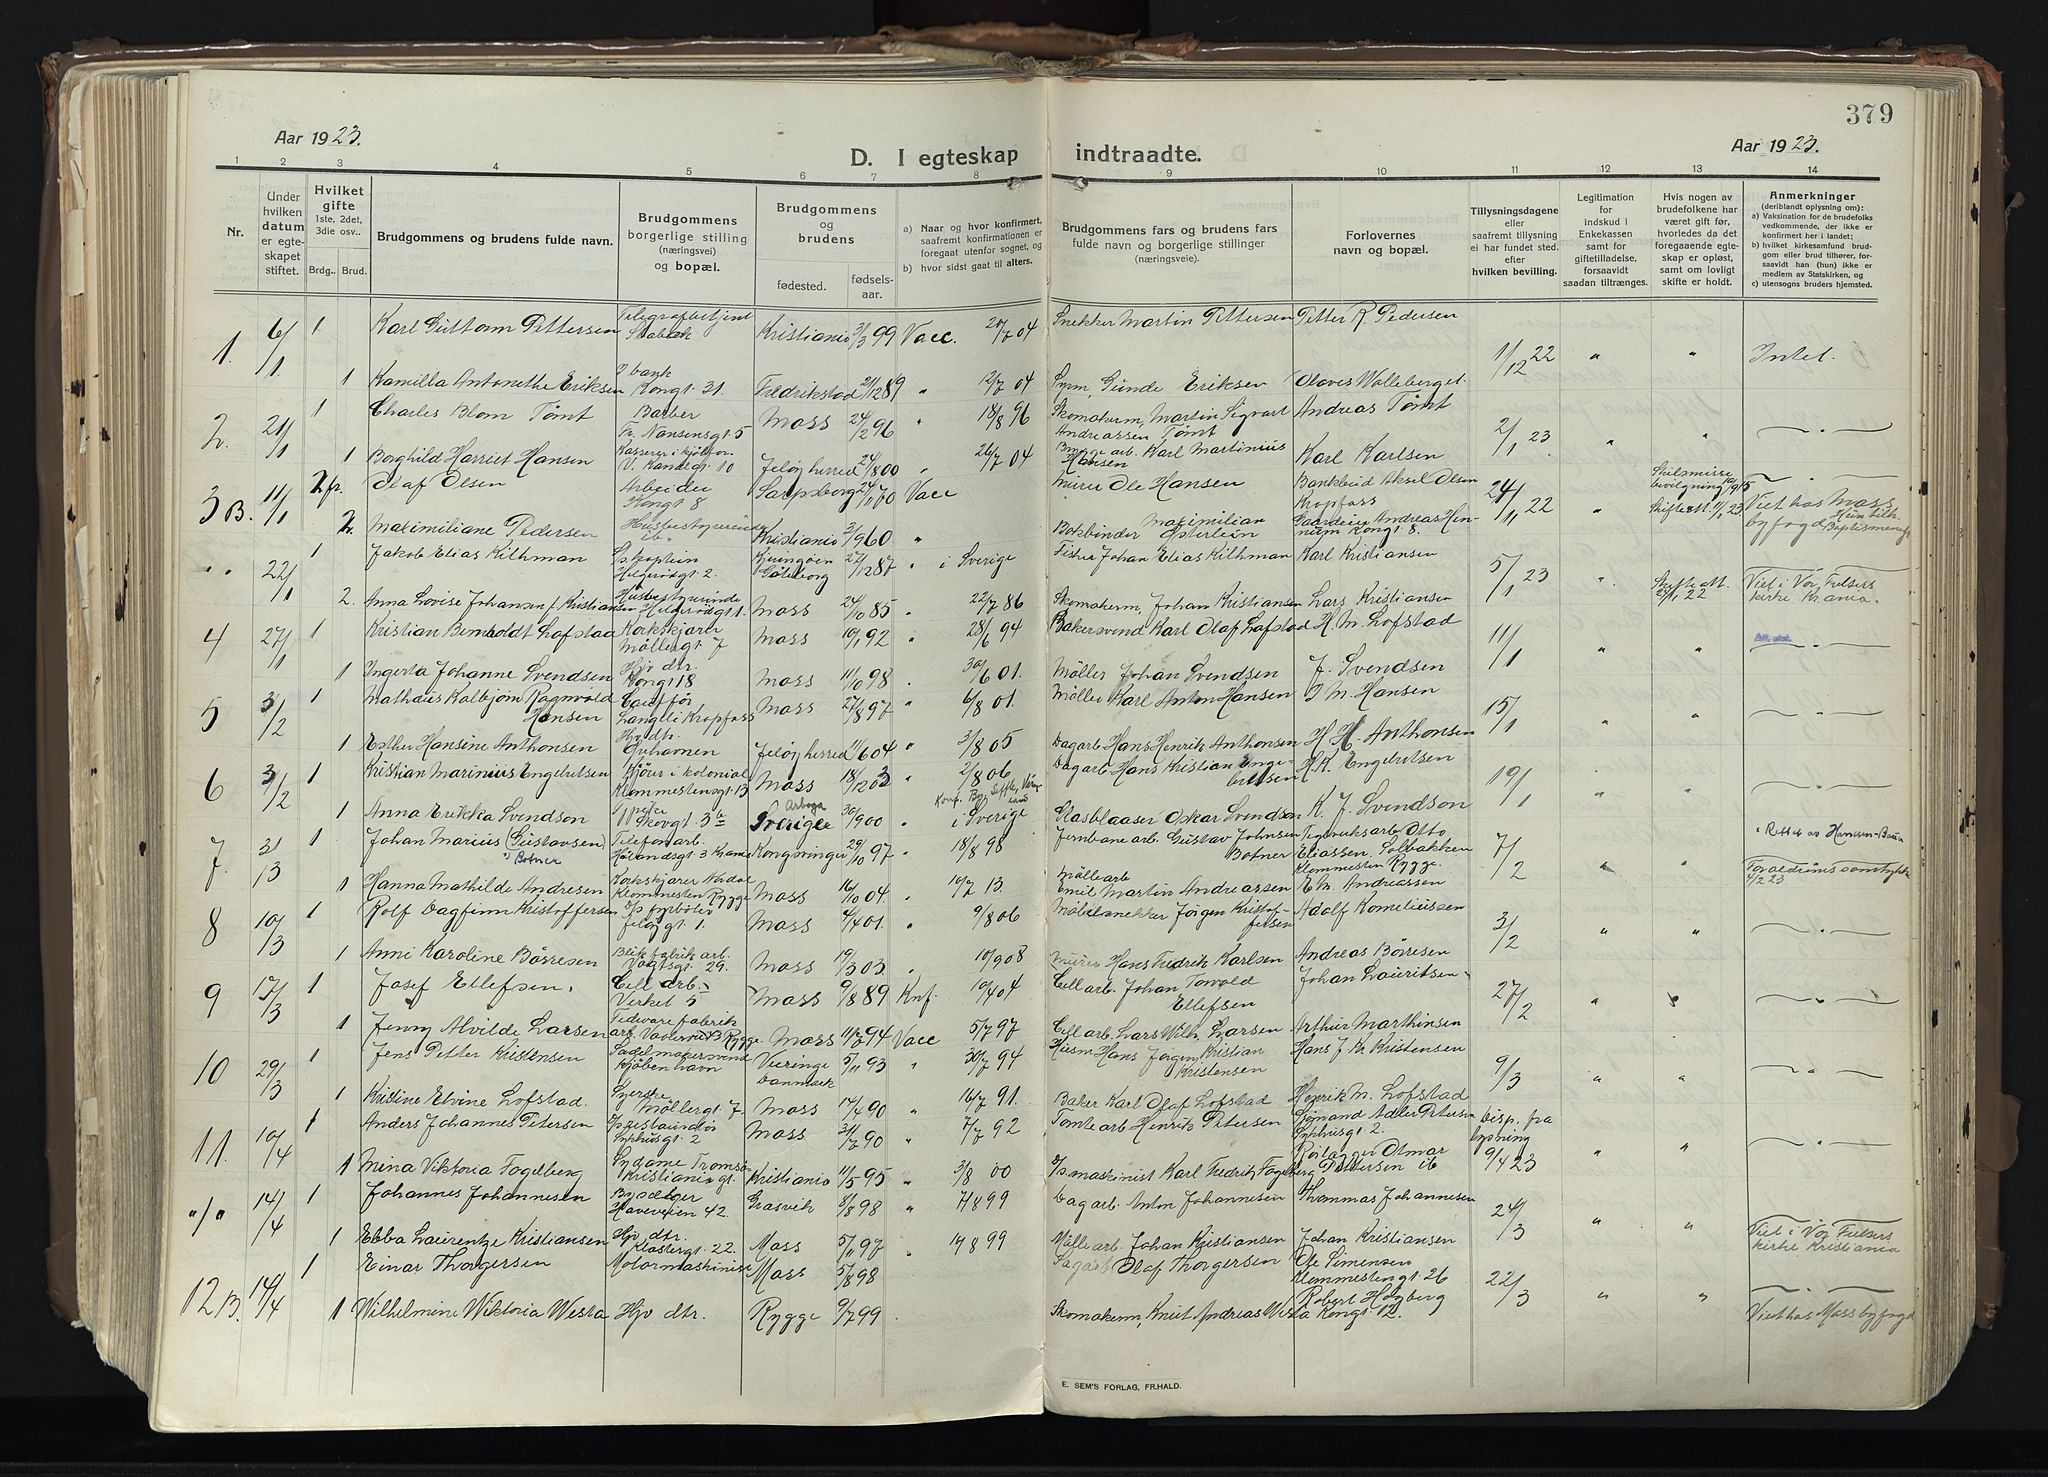 379
Aar 1923.
D. I egteskap indtraadte.
Aar 1923.
1 2 3 4 5 6 7 8 9 10 11 12 13 14
Nr.
Under hvilken datum er egteskapet stiftet.
Hvilket gifte 1ste, 2det, 3die osv..
Brdg.. Brud.
Brudgommens og brudens fulde navn.
Brudgommens borgerlige stilling (næringsvei) og bopæl.
Brudgommens og brudens
fødested. fødselsaar.
a) Naar og hvor konfirmert, saafremt konfirmationen er foregaat utenfor sognet, og
b) hvor sidst gaat til alters.
Brudgommens fars og brudens fars fulde navn og borgerlige stillinger (næringsveie).
Forlovernes navn og bopæl.
Tillysningsdagene eller saafremt tillysning ei har fundet sted. efter hvilken bevilling.
Legitimation for indskud i Enkekassen samt for giftetilladelse, forsaavidt saadan tiltrænges.
Hvis nogen av brudefolkene har været gift før, hvorledes da det foregaaende egteskap er opløst, samt om lovlig skifte er holdt.
Anmerkninger (deriblandt oplysning om):
a) Vaksination for de brudefolks vedkommende, der ikke er konfirmert her i landet;
b) hvilket kirkesamfund brudgom eller brud tilhører, forsaavidt han (hun) ikke er medlem av Statskirken, og
c) utensogns bruders hjemsted.
1. 6/1 1 Karl Guttorm Pettersen Telegrafbetjent Stabæk Kristiania 3/3 99 Vacc. 20/7 04 Snekker Martin Pettersen Petter R. Pedersen 1/12 22 " " Intet.
1 Kamilla Antonethe Eriksen Kongt. 31. Fredrikstad 21/12 89 " 12/7 04 Gunde Eriksen
2. 21/1 1 Charles Blom Tømt Barber Fr. Nansensgt. 5 Moss 24/2 96 " 18/8 96 Skomakerm. Martin Sigvart Andreassen Tømt Andreas Tømt 2/1 23 " "
1 Borghild Harriet Hansen V. Kanalgt. 10 Jeløy herred 24/8 00 " 26/7 04 Brygge arb. Karl Martinius Hansen Karl Karlsen
3 B. 11/1 2. fr. Olaf Olsen Arbeider Kongt 8 Sarpsborg 24/11 70 Vacc Murer Ole Hansen Bankbud Aksel Olsen Kropfoss 24/11 22 Skilsmisse bevilgning Skifteatt. 11/1 23 Viet hos Moss byfogd
2. Maximiliane Pedersen Husbestyrerinde ib. Kristiania 3/9 60 " Bokbinder Maximilian Österlein Gaardeier Andreas Kongt. 8.
" 22/1 1 Jakob Elias Kilhman Helgerødgt. 2. Göteborg 27/12 87 " i Sverige Fisker Johan Elias Kilhman Karl Kristiansen 5/1 23 " Skifteatt. 22 Viet i Vor Frelsers kirke Kr.ania.
2. Anna Lovise Johansen f. Kristiansen Husbestyrerinde Helgerødgt. 1. Moss 24/10 85 " 22/7 86 Skomakerm. Johan Kristiansen Lars Kristiansen
4 27/1 1 Kristian Bernholdt Lofstad Korkskjærer Møllergt. 7 Moss 10/1 92 " 28/6 94 Bakersvend Karl Olaf Lofstad H. M. Lofstad 11/1 " "
1 Ingerta Johanne Svendsen Hjv dtr. Kongt 18 Moss 11/10 98 . 30/6 01. Møller Johan Svendsen J. Svendsen
5 3/2 1 Mathæus Kolbjørn Ragnvald Hansen Kropfoss Moss 27/8 97 " 6/8 01 Møller Karl Anton Hansen M. Hansen 15/1 " "
1 Esther Hansine Anthonsen Hjv dtr. Jeløy herred 11/6 04 " 3/8 05 Dagarb Hans Henrik Anthonsen H. H. Anthonsen
6 3/2 1 Kristian Marinius Engebretsen Kjører i kolonial Klommestensgt. 13 Moss 18/12 03 " 2/8 06 Dagarb Hans Kristian Engebretsen H. K. Engebretsen 19/1 " "
1 Anna Erikka Svendson Skovgt. 3b Arboga Sverige 30/9 00 " i Sverige Glasblaaser Oskar Svendson K. J. Svendson
7. 31/3 1 Johan Marius (Gustavsen) Botner Telefonarb. Kongsvinger 29/10 97 " 18/8 98 Jernbane arb. Gustav Johnsen Botner Teglverksarb Otto Eliassen Solbakken 7/2 " " Rettet av
1 Hanna Mathilde Andresen Korkskjærer Klommesten Rygge Moss 16/10 04. " 10/7 13. Møllearb Emil Martin Andreassen Klommesten Rygge. E M. Andreassen Forældrenes samtykke 4/2 23
8 10/3 1 Rolf Dagfinn Kristoffersen D/s fyrbøter Jeløgt. 1. Moss 4/4 01. " 9/8 06 Møbelsnekker Jørgen Kristoffersen Adolf Korneliussen 3/2 " "
1 Anni Karoline Børresen Blikfabrik arb. Vogtsgt. 29. Moss 19/3 03. " 10/9 08 Murer Hans Fredrik Karlsen Andreas Børresen
9 17/3 1 Josef Ellefsen. Cell arb. Verket 5 Moss 9/8 89 Knf. 10/4 04 Cellarb. Johan Torvald Ellefsen Johan Lauritsen 27/2 " "
1 Jenny Alvilde Larsen Rygge. Moss 11/2 94 Vacc 5/7 97 Cellarb. Lars Wilh. Larsen Arthur Marthinsen
10 29/3 1 Jens Petter Kristensen Sadelmakersvend Kjøbenhavn Danmark 5/11 93 " 30/7 94 Husm. Hans Jørgen Kristian Kristensen Hans J. Kr. Kristensen 9/3 " "
1 Kristine Elvine Lofstad. Syerske Møllergt. 7. Moss 17/4 90 " 16/7 91. Baker Karl Olaf Lofstad Henrik M. Lofstad
11. 10/4 1 Anders Johannes Petersen Moss 31/7 90 " 7/7 92 Tomtearb Henrik Petersen Sjømand Adler Petersen Disp. fra lysning 9/4 23 " "
1 Mina Viktoria Fagelberg Kristiania 11/5 95 " 3/8 00 D/s maskinist Karl Fredrik Fagelberg Rørlægger Otmar Pettersen ib
" 14/4 1 Johannes Johannesen Haveveien 42. Græsvik 8/8 98 " 7/8 99 Dagarb. Anton Johannesen Thommas Johannesen 24/3 " " Viet i Vor Frelsers kirke Kristiania
1 Ebba Laurentze Kristiansen Hjv dtr. Klostergt. 22. Moss 5/11 97 " 19/8 99 Møllearb. Johan Kristiansen Johan Kristiansen
12 B. 14/4 1 Einar Thorgersen Motormaskinist Moss 5/8 98 Sagarb Olaf Thorgersen Ole Simensen Klommestengt. 26 22/3 " "
1 Wilhelmine Wiktoria Westa Hjv dtr. Rygge 9/7 99 Skomakerm. Knut Andreas Westa Robert Høyberg Kongt 12. Viet hos Moss byfogd
E. SEM'S FORLAG, FR.HALD.